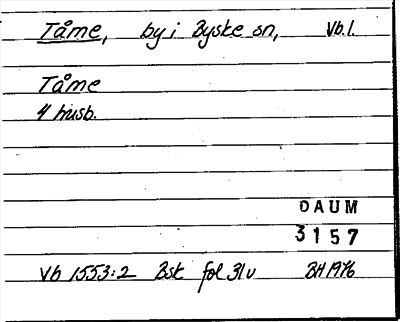 Tåme, by i Byske sn, Vb.l.
Tåme
4 husb.
DAUM
3157
Vb 1553:2 Bsk fol 31v BH 1976